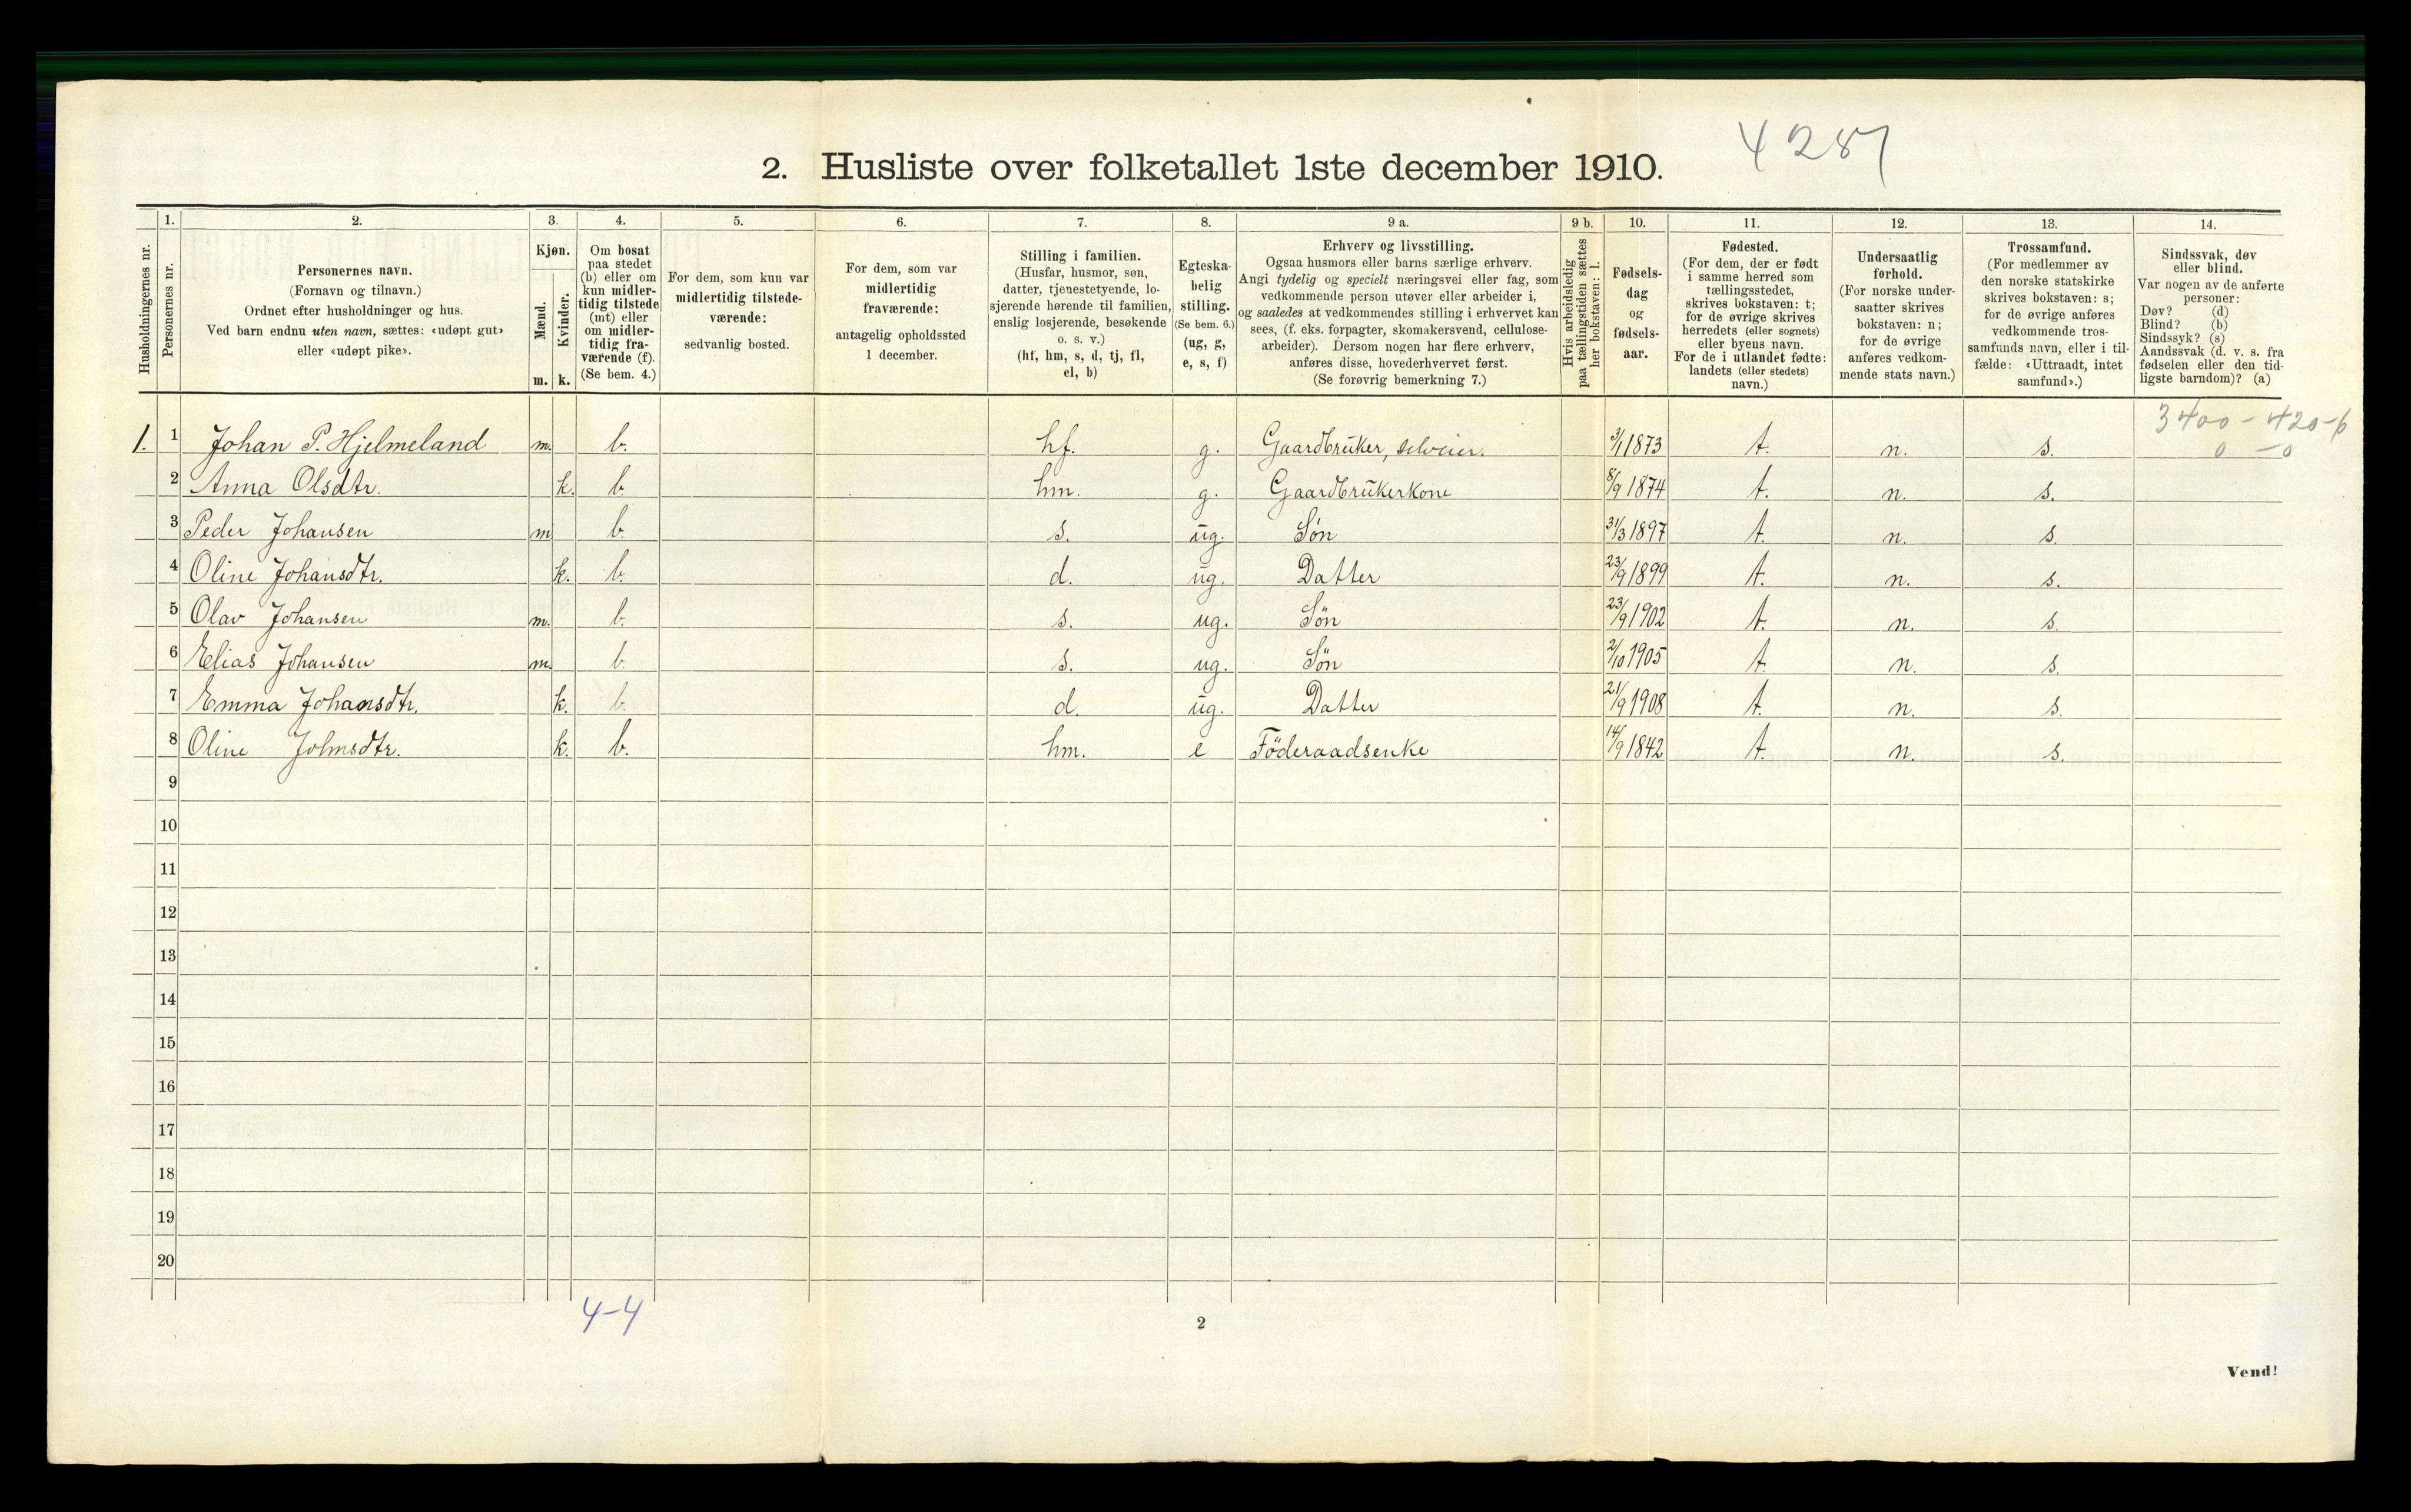 4287
2. Husliste over folketallet 1ste december 1910.
Husholdningernes nr.
1.
Personernes nr.
2.
Personernes navn.
(Fornavn og tilnavn.)
Ordnet efter husholdninger og hus.
Ved barn endnu uten navn, sættes: «udøpt gut»
eller «udøpt pike».
3.
Kjøn.
Mænd.
Kvinder.
m. k.
4.
Om bosat
paa stedet
(b) eller om
kun midler-
tidig tilstede
(mt) eller
om midler-
tidig fra-
værende (f).
(Se bem. 4.)
5.
For dem, som kun var
midlertidig tilstede-
værende:
sedvanlig bosted.
6.
For dem, som var
midlertidig
fraværende:
antagelig opholdssted
1 december.
7.
Stilling i familien.
(Husfar, husmor, søn,
datter, tjenestetyende, lo-
sjerende hørende til familien,
enslig losjerende, besøkende
o. s. v.)
(hf, hm, s, d, tj, fl,
el, b)
8.
Egteska-
belig
stilling.
(Se bem. 6.)
(ug, g,
e, s, f)
9 a.
Erhverv og livsstilling.
Ogsaa husmors eller barns særlige erhverv.
Angi tydelig og specielt næringsvei eller fag, som
vedkommende person utøver eller arbeider i,
og saaledes at vedkommendes stilling i erhvervet kan
sees, (f. eks. forpagter, skomakersvend, cellulose-
arbeider). Dersom nogen har flere erhverv,
anføres disse, hovederhvervet først.
(Se forøvrig bemerkning 7.)
9 b.
Hvis arbeidsledig
paa tællingstiden sættes
her bokstaven: l.
10.
Fødsels-
dag
og
fødsels-
aar.
11.
Fødested.
(For dem, der er født
i samme herred som
tællingsstedet,
skrives bokstaven: t;
for de øvrige skrives
herredets (eller sognets)
eller byens navn.
For de i utlandet fødte:
landets (eller stedets)
navn.)
12.
Undersaatlig
forhold.
(For norske under-
saatter skrives
bokstaven: n;
for de øvrige
anføres vedkom-
mende stats navn.)
13.
Trossamfund.
(For medlemmer av
den norske statskirke
skrives bokstaven: s;
for de øvrige anføres
vedkommende tros-
samfunds navn, eller i til-
fælde: «Uttraadt, intet
samfund».)
14.
Sindssvak, døv
eller blind.
Var nogen av de anførte
personer:
Døv? (d)
Blind? (b)
Sindssyk? (s)
Aandssvak (d. v. s. fra
fødselen eller den tid-
ligste barndom)? (a)
3400-420-6
0 - 0
1. 1 Johan P. Hjelmeland m. b. hf. g. Gaardbruker, selveier. 3/1 1873 t. n. s.
2 Anna Olsdtr. k. b. hm. g. Gaardbrukerkone 8/9 1874 t. n. s.
3 Peder Johansen m b. s. ug. Søn 31/3 1897 t. n. s.
4 Oline Johansdtr. k. b. d. ug. Datter 23/9 1899 t. n. s.
5 Olav Johansen m. b. s. ug. Sön 23/9 1902 t. n. s.
6 Elias Johansen m. b. s. ug. Sön 2/10 1905 t. n. s.
7 Emma Johansdtr. k. b. d. ug. Datter 21/9 1908 t. n. s.
8 Oline Johnsdtr. k. b. hm. e Föderaadsenke 14/9 1842 t. n. s.
9
10
11
12
13
14
15
16
17
18
19
20
4-4
2
Vend!